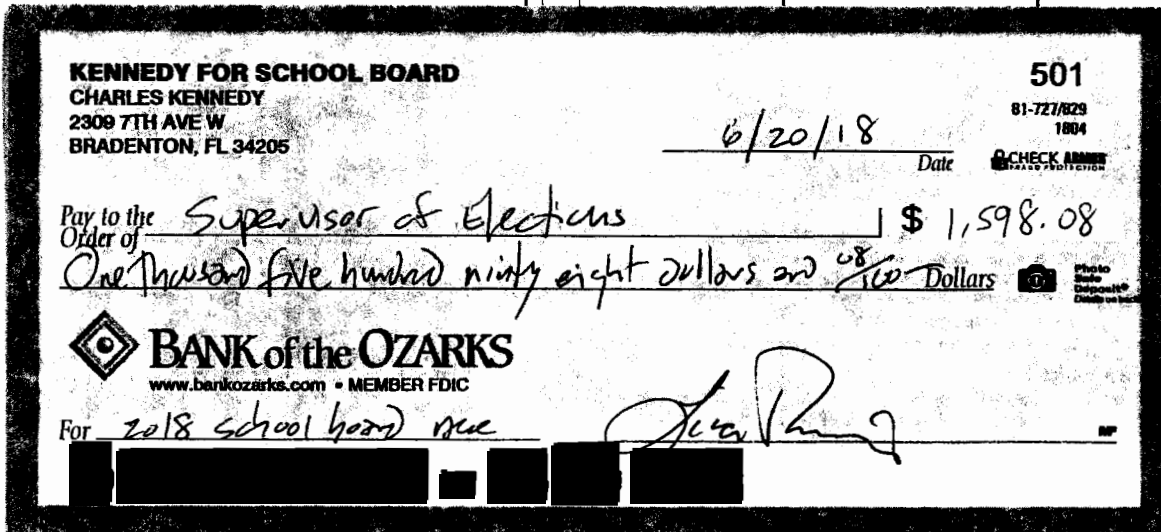 KENNEDY FOR SCHOOL BOARD
CHARLES KENNEDY
2309 7TH AVE W
BRADENTON, FL 34205
501
81-727/829
1804
6/20/18
Date
CHECK ARMOR
FRAUD PROTECTION
Pay to the
Order of Supervisor of Elections $ 1,598.08
One thousand five hundred ninty eight dollars and 08/100 Dollars
Photo
Safe
Deposit®
Details on back
BANK of the OZARKS
www.bankozarks.com • MEMBER FDIC
For 2018 school board race
MP